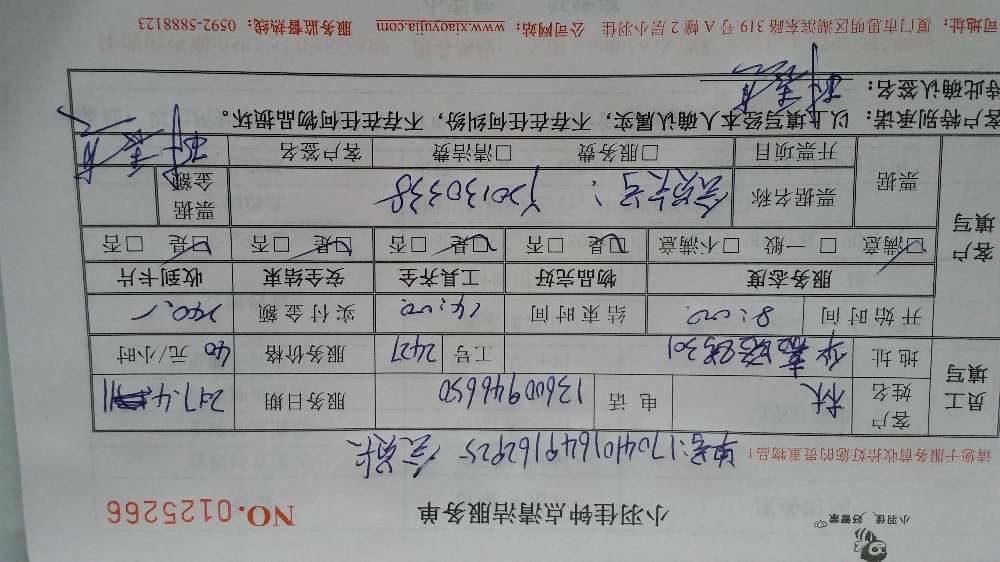 小羽佳 好管家
小羽佳钟点清洁服务单
NO.0125266
请您于服务前收拾好您的贵重物品!
单号:170401649162925 会员卡
员工填写
客户姓名 林 电话 13600946650 服务日期 2017.4.
地址 301 工号 2427 服务价格 40 元/小时
开始时间 8:00. 结束时间 14:00. 实付金额 240.
客户填写
服务态度 物品完好 工具齐全 安全结束 收到卡片
☑满意 □一般 □不满意 ☑是 □否 ☑是 □否 ☑是 □否 ☑是 □否
票据 票据名称 会员卡号: 票据金额
开票项目 □服务费 □清洁费 客户签名
客户特别承诺: 以上填写经本人确认属实,不存在任何纠纷,不存在任何物品损坏。
特此确认签名:
司地址: 厦门市思明区湖滨东路 319 号 A 幢 2 层小羽佳 公司网站: www.xiaoyujia.com 服务监督热线: 0592-5888123